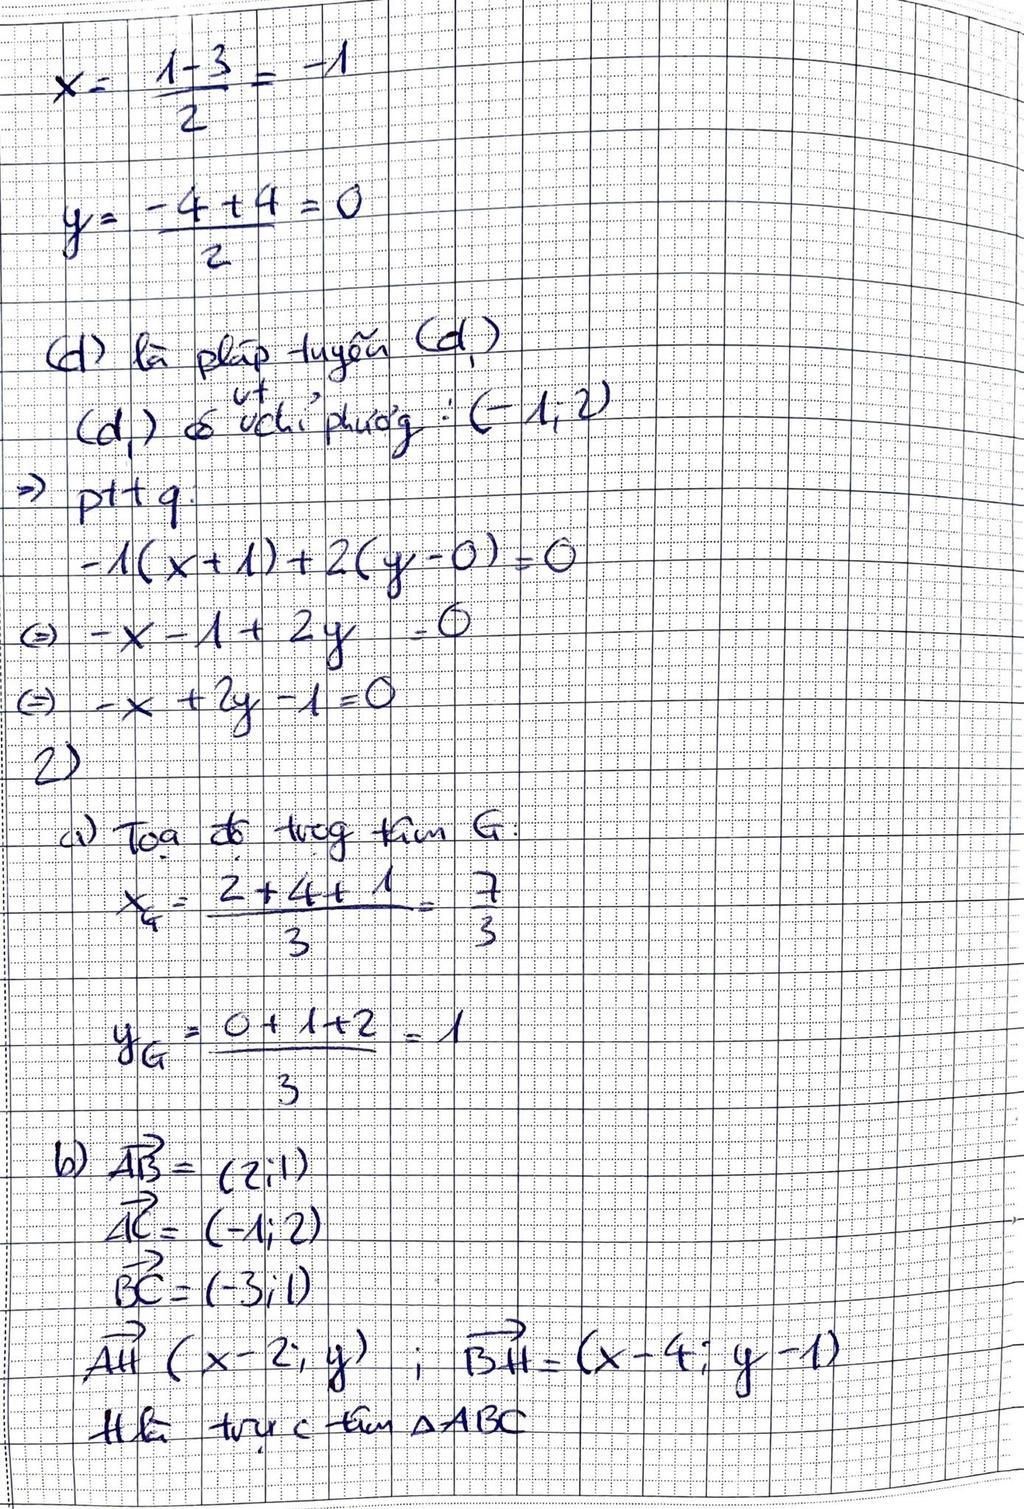 x = (1-3)/2 = -1
y = (-4+4)/2 = 0
(d) là pháp tuyến (d₁)
(d₁) có vt chỉ phương : (-1; 2)
=> pttq:
-1(x+1)+2(y-0)=0
(=) -x-1+2y = 0
(=) -x+2y-1=0
2)
a) Tọa độ trọg tâm G:
x_G = (2+4+1)/3 = 7/3
y_G = (0+1+2)/3 = 1
b) AB⃗ = (2;1)
AC⃗ = (-1;2)
BC⃗ = (-3;1)
AH⃗ (x-2; y) ; BH⃗ = (x-4; y-1)
H là trực tâm ΔABC